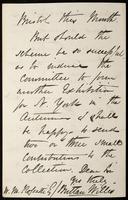 Bristol this Month.
But should the
scheme be so successful
as to induce the
Committee to form
another Exhibition
for N. York in the
Autumn I shall
be happy to send
two or three small
Contributions to the
Collection. Dear Sir
Yrs truly
W. M. Rossetti Esq Brittan Willis